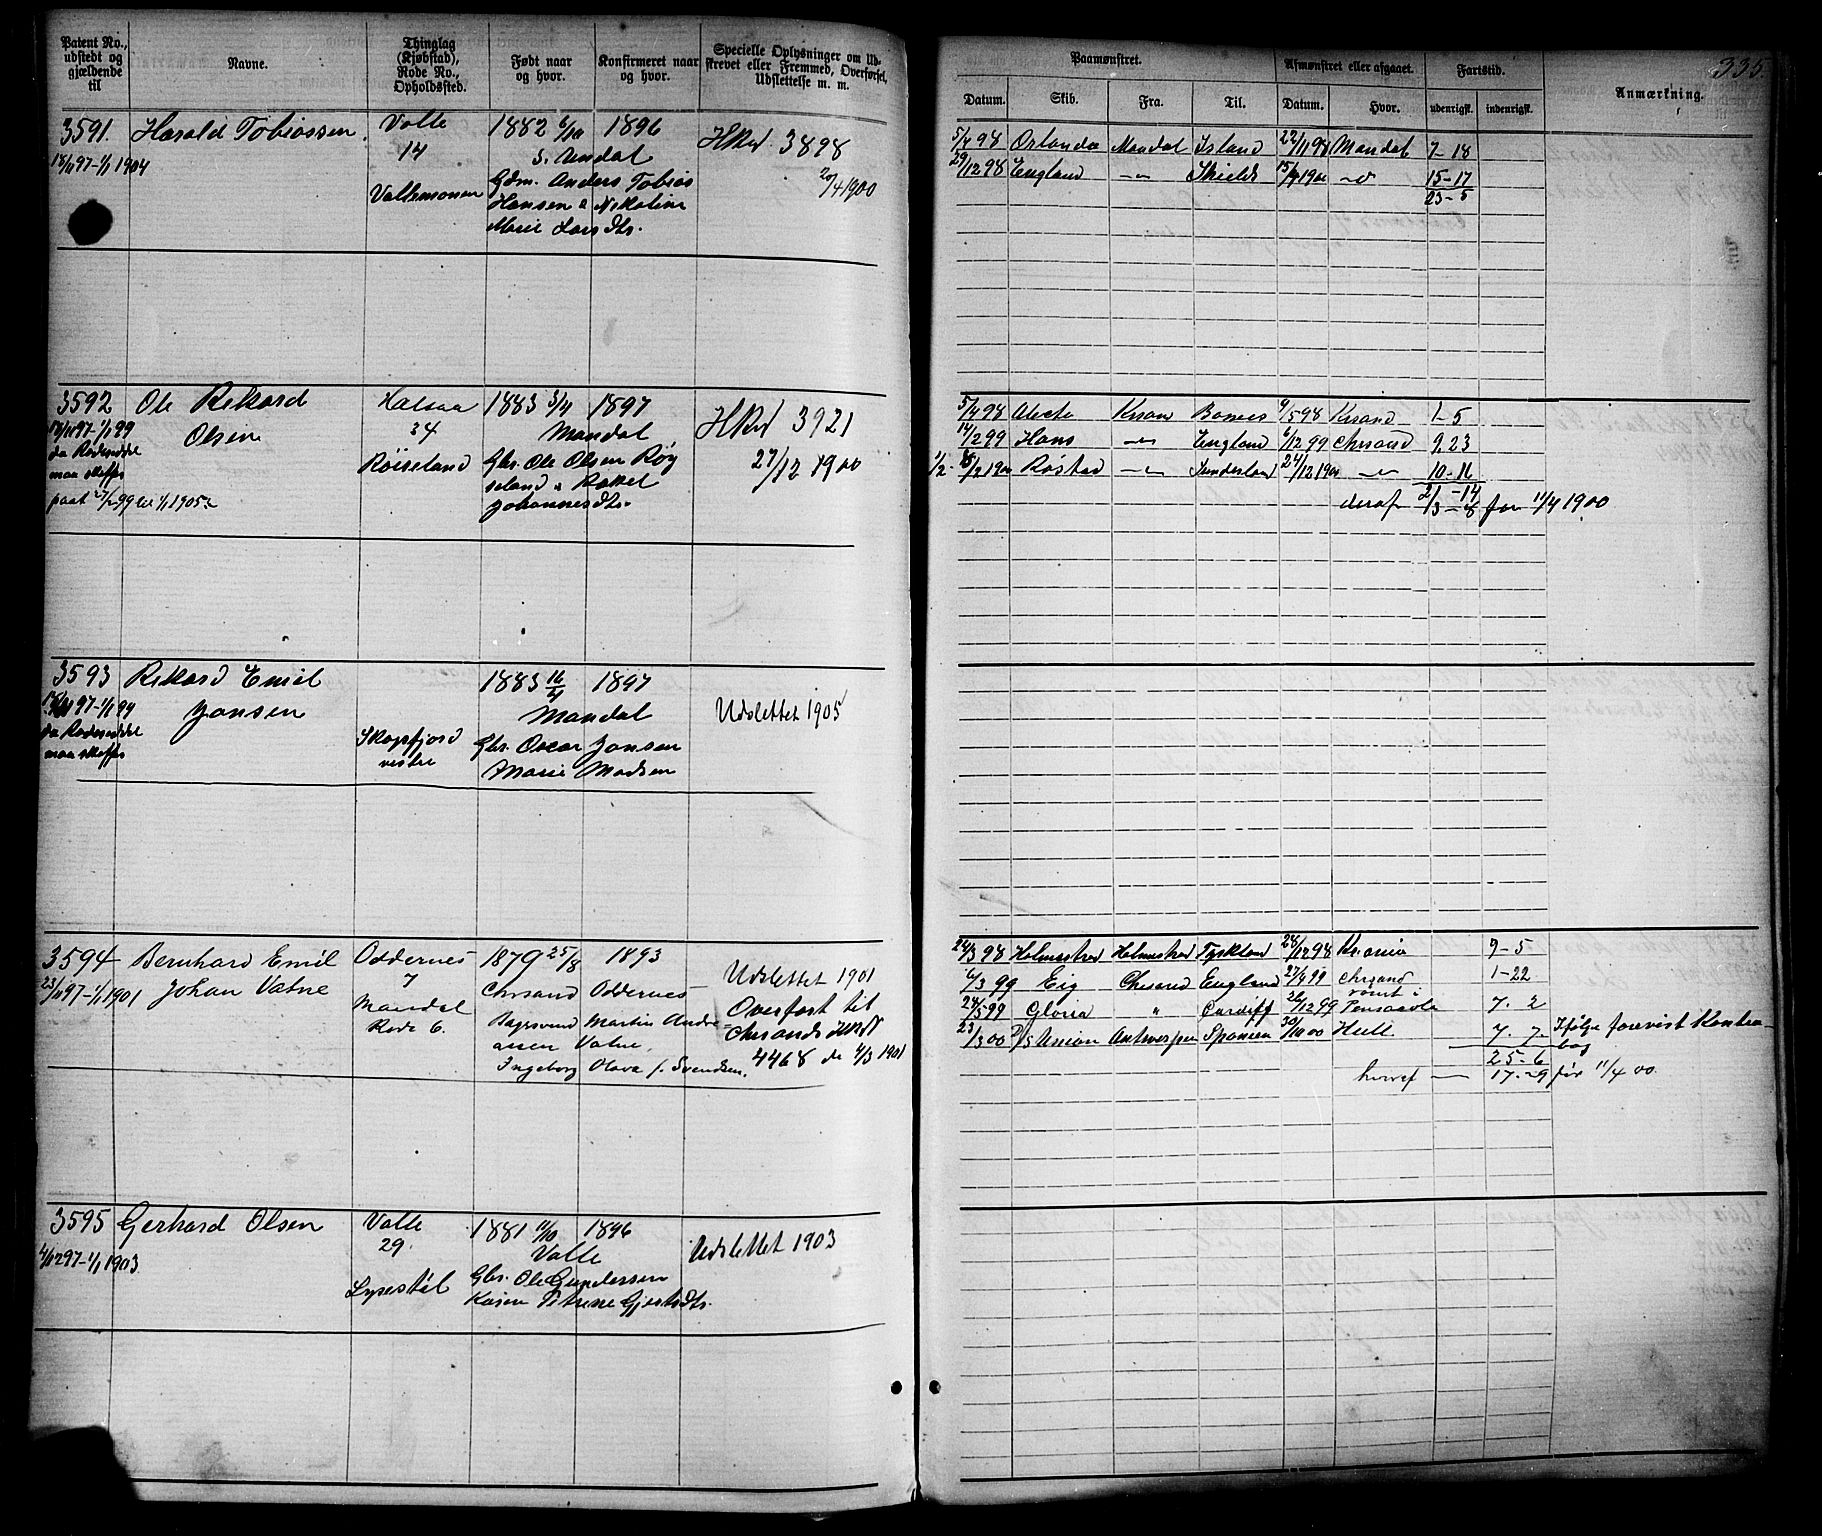 335.
Patent No., udstedt og gjældende til
Navne.
Thinglag (Kjøbstad), Rode No., Opholdssted.
Født naar og hvor.
Konfirmeret naar og hvor.
Specielle Oplysninger om Udskrevet eller Fremmed, Overførsel, Udslettelse m. m.
Paamønstret.
Afmønstret eller afgaaet.
Fartstid.
Anmærkning.
Datum.
Skib.
Fra.
Til.
Datum.
Hvor.
udenrigsk.
indenrigsk.
3591. Harald Tobiassen Valle 1882 6/10 1896 HRul 3898
18/11 97-1/1 1904 14 S. Undal 20/4 1900
Vallemonen Gdm. Anders Tobias
Hansen & Nikoline
Marie Larsdtr.
5/4 98 Orlando Mandal Island 22/11 98 Mandal 7-18
29/12 98 England -"- Shields 15/4 1900 -"- 15-17
23-5
3592 Ole Rikard Halsaa 1883 3/4 1897 HRul 3921
18/11 97-1/1 99 Olsen 34 Mandal 27/12 1900
da Rodeseddel Røiseland Gbr. Ole Olsen Røy
maa skaffes seland & Rakel
paat 27/2 99 til 1/1 1905 Johannesdtr.
5/4 98 Alecto Krsand Boness 9/5 98 Krsand 1-5
14/2 99 Hans -"- England 6/12 99 Chrsand 9,23
Røstad -"- Sunderland 24/12 1900 -"- 10-16
21-14
deraf 13-8 før 11/4 1900
3593 Rikard Emil 1883 16/4 1897 Udslettet 1905
18/11 97-1/1 99 Jansen Mandal
da Rodeseddel Skogsfjord Gbr. Oscar Jansen
maa skaffes vestre Marie Madsen
3594 Bernhard Emil Oddernes 1879 25/8 1893 Udslettet 1901
23/11 97-1/1 1901 Johan Vatne 7 Chrsand Oddernes Overført til
Mandal Martin Andre= Chrsands HRul
Rode 6. assen Vatne, 4468 de 4/3 1901
Ingeborg Olava f. Svendsen.
24/3 98 Holmestrand Holmestrand Tyskland 28/12 98 Kr.ania 9-5
6/3 99 Eig Chrsand England 27/4 99 Chrsand 1-22
24/5 99 Gloria " Cardiff 26/12 99 rømt i Pensacola 7. 2
23/3 00 D/S Union Antwerpen Spanien 30/10 00 Hull 7. 7. Ifølge forevist Kontra-
bog
25-6
herav — 17-29 før 11/4 00.
3595 Gerhard Olsen Valle 1881 11/10 1896 Udslettet 1903
4/12 97-1/1 1903 29. Valle
Lyestøl Gbr. Ole Gundersen
Karen Petrine Gjertsdtr.